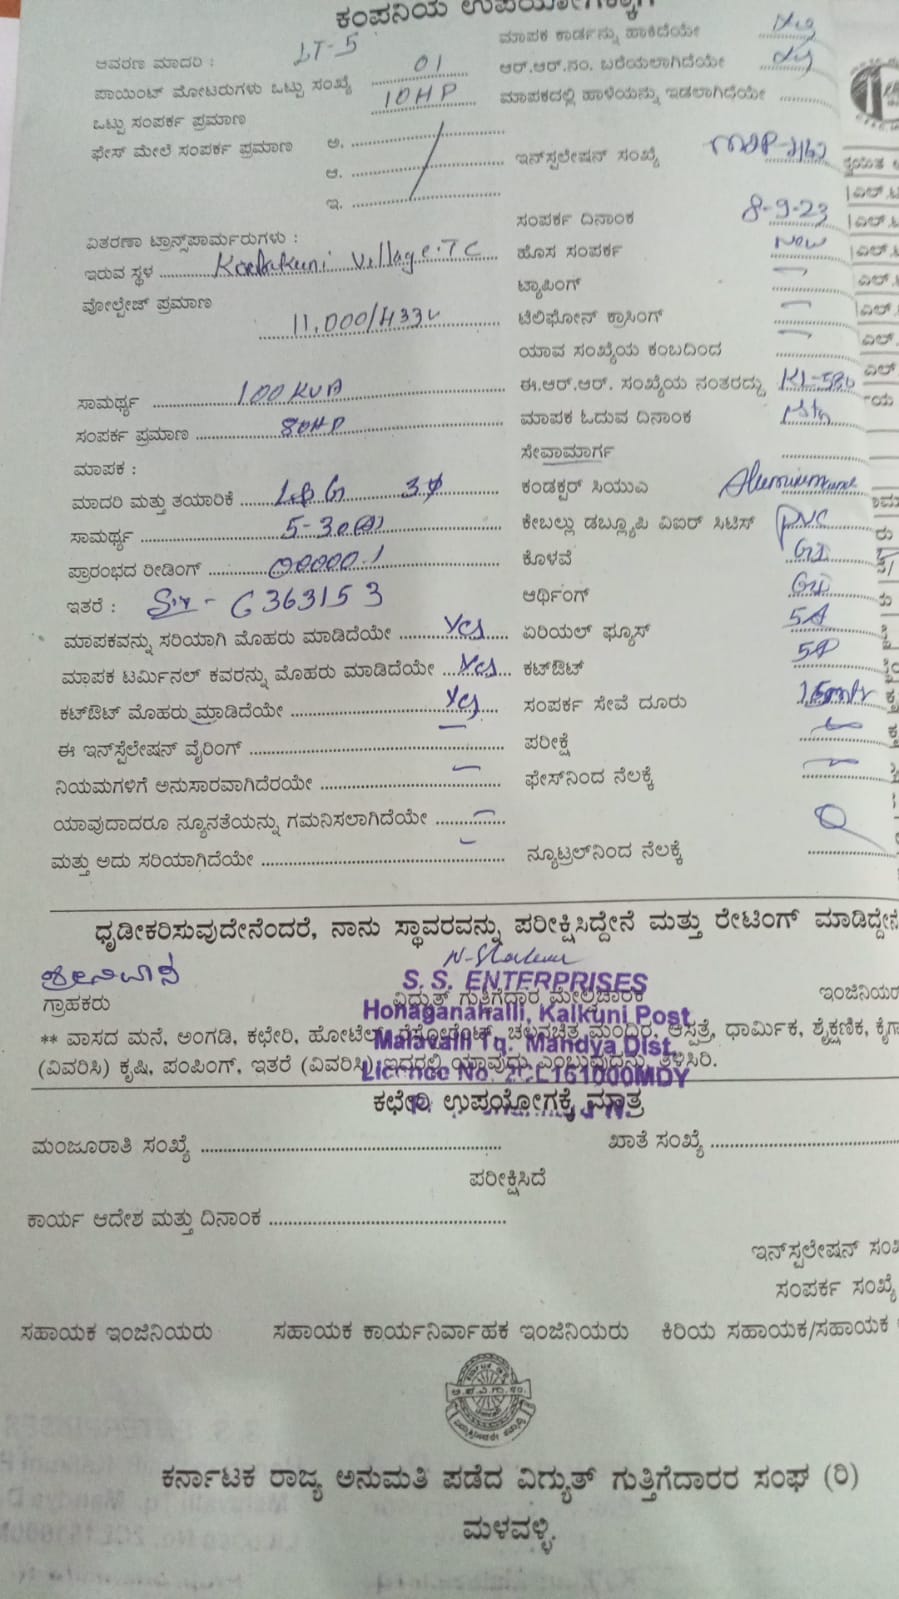 ಕಂಪನಿಯ ಉಪಯೋಗಕ್ಕಾಗಿ
ಆವರಣ ಮಾದರಿ : LT-5
ಪಾಯಿಂಟ್ ಮೋಟರುಗಳು ಒಟ್ಟು ಸಂಖ್ಯೆ 01
ಒಟ್ಟು ಸಂಪರ್ಕ ಪ್ರಮಾಣ 10HP
ಫೇಸ್ ಮೇಲೆ ಸಂಪರ್ಕ ಪ್ರಮಾಣ ಅ.
ಆ.
ಇ.
ವಿತರಣಾ ಟ್ರಾನ್ಸ್‌ಫಾರ್ಮರುಗಳು :
ಇರುವ ಸ್ಥಳ Village TC
ವೋಲ್ಟೇಜ್ ಪ್ರಮಾಣ
11,000/433v
ಸಾಮರ್ಥ್ಯ 100KVA
ಸಂಪರ್ಕ ಪ್ರಮಾಣ 80HP
ಮಾಪಕ :
ಮಾದರಿ ಮತ್ತು ತಯಾರಿಕೆ L&G 3φ
ಸಾಮರ್ಥ್ಯ 5-30(A)
ಪ್ರಾರಂಭದ ರೀಡಿಂಗ್ 00000.1
ಇತರೆ : G363153
ಮಾಪಕವನ್ನು ಸರಿಯಾಗಿ ಮೊಹರು ಮಾಡಿದೆಯೇ Yes
ಮಾಪಕ ಟರ್ಮಿನಲ್ ಕವರನ್ನು ಮೊಹರು ಮಾಡಿದೆಯೇ Yes
ಕಟ್‌ಔಟ್ ಮೊಹರು ಮಾಡಿದೆಯೇ Yes
ಈ ಇನ್‌ಸ್ಟೆಲೇಷನ್ ವೈರಿಂಗ್
ನಿಯಮಗಳಿಗೆ ಅನುಸಾರವಾಗಿದೆರಯೇ
ಯಾವುದಾದರೂ ನ್ಯೂನತೆಯನ್ನು ಗಮನಿಸಲಾಗಿದೆಯೇ
ಮತ್ತು ಅದು ಸರಿಯಾಗಿದೆಯೇ
ಮಾಪಕ ಕಾರ್ಡನ್ನು ಹಾಕಿದೆಯೇ
ಆರ್.ಆರ್.ನಂ. ಬರೆಯಲಾಗಿದೆಯೇ
ಮಾಪಕದಲ್ಲಿ ಹಾಳೆಯನ್ನು ಇಡಲಾಗಿದೆಯೇ
ಇನ್‌ಸ್ಟಲೇಷನ್ ಸಂಖ್ಯೆ
ಸಂಪರ್ಕ ದಿನಾಂಕ 8-9-23
ಹೊಸ ಸಂಪರ್ಕ New
ಟ್ಯಾಪಿಂಗ್
ಟೆಲಿಫೋನ್ ಕ್ರಾಸಿಂಗ್
ಯಾವ ಸಂಖ್ಯೆಯ ಕಂಬದಿಂದ
ಈ.ಆರ್.ಆರ್. ಸಂಖ್ಯೆಯ ನಂತರದ್ದು
ಮಾಪಕ ಓದುವ ದಿನಾಂಕ
ಸೇವಾಮಾರ್ಗ
ಕಂಡಕ್ಟರ್ ಸಿಯುಎ
ಕೇಬಲ್ಲು ಡಬ್ಲ್ಯೂಪಿ ವಿಐರ್ ಸಿಟಿಸ್ PVC
ಕೊಳವೆ GI
ಆರ್ಥಿಂಗ್ GI
ಏರಿಯಲ್ ಫ್ಯೂಸ್ 5A
ಕಟ್‌ಔಟ್ 5A
ಸಂಪರ್ಕ ಸೇವೆ ದೂರು
ಪರೀಕ್ಷೆ
ಫೇಸ್‌ನಿಂದ ನೆಲಕ್ಕೆ
ನ್ಯೂಟ್ರಲ್‌ನಿಂದ ನೆಲಕ್ಕೆ
ಧೃಡೀಕರಿಸುವುದೇನೆಂದರೆ, ನಾನು ಸ್ಥಾವರವನ್ನು ಪರೀಕ್ಷಿಸಿದ್ದೇನೆ ಮತ್ತು ರೇಟಿಂಗ್ ಮಾಡಿದ್ದೇನೆ
ಶ್ರೀನಿವಾಸ
S. S. ENTERPRISES
ಗ್ರಾಹಕರು ವಿದ್ಯುತ್ ಗುತ್ತಿಗೆದಾರ ಮೇಲ್ವಿಚಾರಕ ಇಂಜಿನಿಯರ
Honaganahalli, Kalkuni Post,
** ವಾಸದ ಮನೆ, ಅಂಗಡಿ, ಕಛೇರಿ, ಹೋಟೆಲ್, ರೆಸ್ಟೋರೆಂಟ್, ಚಲನಚಿತ್ರ ಮಂದಿರ, ಆಸ್ಪತ್ರೆ, ಧಾರ್ಮಿಕ, ಶೈಕ್ಷಣಿಕ, ಕೈಗಾ
Malavalli Tq. Mandya Dist.
(ವಿವರಿಸಿ) ಕೃಷಿ, ಪಂಪಿಂಗ್, ಇತರೆ (ವಿವರಿಸಿ) ಇದರಲ್ಲಿ ಯಾವುದು ಎಂಬುವುದನ್ನು ತಿಳಿಸಿರಿ.
Licence No. 2CL161000MDY
ಕಛೇರಿ ಉಪಯೋಗಕ್ಕೆ ಮಾತ್ರ
ಮಂಜೂರಾತಿ ಸಂಖ್ಯೆ ಖಾತೆ ಸಂಖ್ಯೆ
ಪರೀಕ್ಷಿಸಿದೆ
ಕಾರ್ಯ ಆದೇಶ ಮತ್ತು ದಿನಾಂಕ
ಇನ್‌ಸ್ಟಲೇಷನ್ ಸಂಖ
ಸಂಪರ್ಕ ಸಂಖ್ಯೆ
ಸಹಾಯಕ ಇಂಜಿನಿಯರು ಸಹಾಯಕ ಕಾರ್ಯನಿರ್ವಾಹಕ ಇಂಜಿನಿಯರು ಕಿರಿಯ ಸಹಾಯಕ/ಸಹಾಯಕ
ಕರ್ನಾಟಕ ರಾಜ್ಯ ಅನುಮತಿ ಪಡೆದ ವಿದ್ಯುತ್ ಗುತ್ತಿಗೆದಾರರ ಸಂಘ (ರಿ)
ಮಳವಳ್ಳಿ.